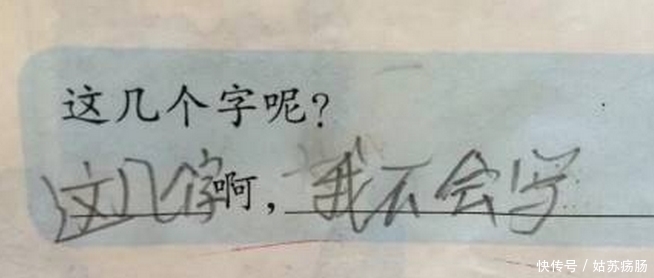 这几个字呢?
这几个字啊,我不会写
快传号/姑苏疡肠